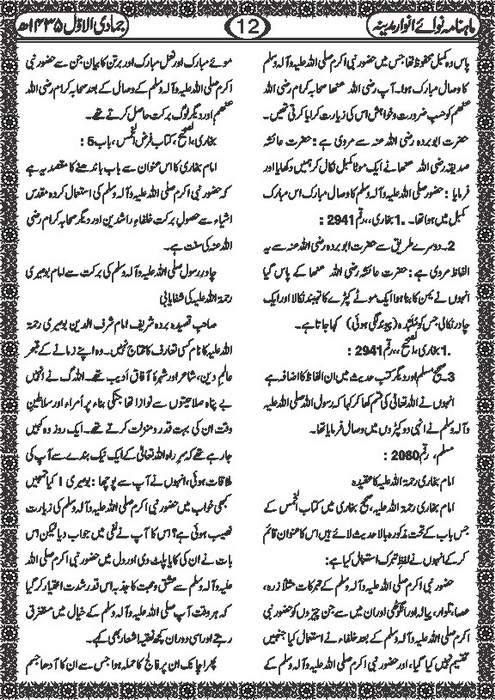 ماہنامہ نوائے انوار مدینہ
12
جمادی الاوّل ۱۴۳۵ھ
پاس وہ کمبل محفوظ تھا جس میں حضور نبی اکرم صلی اللہ علیہ وآلہ وسلم
کا وصال مبارک ہوا۔ آپ صحابہ کرام رضی اللہ
عنھم کو حسب ضرورت وخواہش اس کی زیارت کرایا کرتی تھیں۔
حضرت ابو بردہ رضی اللہ عنہ سے مروی ہے : حضرت عائشہ
صدیقہ رضی اللہ عنھا نے ایک موٹا کمبل نکال کر ہمیں دکھایا اور
فرمایا : حضور صلی اللہ علیہ وآلہ وسلم کا وصال مبارک اس مبارک
کمبل میں ہوا تھا۔ .1 بخاری،، رقم 2941 :
2۔ دوسرے طریق سے حضرت ابو بردہ رضی اللہ عنہ سے یہ
الفاظ مروی ہے : حضرت عائشہ رضی اللہ عنھا کے پاس گیا
انہوں نے یمن کا بنا ہوا ایک موٹے کپڑے کا تہبند نکالا اور ایک
چادر نکالی جس کو مُلَبَّدَہ (پیوند لگی ہوئی) کہا جاتا ہے۔
.1 بخاری، الصحیح، رقم 2941 :
3۔ صحیح مسلم اور دیگر کتب حدیث میں ان الفاظ کا اضافہ ہے
انہوں نے اللہ تعالی کی قسم کھا کر کہا کہ رسول اللہ صلی اللہ علیہ
وآلہ وسلم نے انہی دو کپڑوں میں وصال فرمایا تھا۔
مسلم، رقم 2080 :
امام بخاری رحمۃ اللہ علیہ کا عقیدہ
امام بخاری رحمۃ اللہ علیہ، صحیح بخاری میں کتاب الخمس کے
جس باب کے تحت مذکورہ بالا حدیث لائے ہیں اس کا عنوان قائم
کر کے انہوں نے لفظ تبرک استعمال کیا ہے :
حضور نبی اکرم صلی اللہ علیہ وآلہ وسلم کے تبرکات مثلاً زرہ،
عصا، تلوار، پیالہ اور انگوٹھی اور ان میں سے جن چیزوں کو حضور نبی
اکرم صلی اللہ علیہ وآلہ وسلم کے بعد خلفاء نے استعمال کیا جنہیں
تقسیم نہیں کیا گیا، اور حضور نبی اکرم صلی اللہ علیہ وآلہ وسلم کے
موئے مبارک اور نعل مبارک اور برتن کا بیان جن سے حضور نبی
اکرم صلی اللہ علیہ وآلہ وسلم کے وصال کے بعد صحابہ کرام رضی اللہ
عنھم اور دیگر لوگ برکت حاصل کرتے تھے۔
بخاری، الصحیح، کتاب فرض الخمس، باب 5 :
امام بخاری کا اس عنوان سے باب باندھنے کا مقصد یہ ہے
کہ حضور نبی اکرم صلی اللہ علیہ وآلہ وسلم کی استعمال کردہ مقدس
اشیاء سے حصولِ برکت خلفاءِ راشدین اور دیگر صحابہ کرام رضی
اللہ عنہ کی سنت ہے۔
چادرِ رسول صلی اللہ علیہ وآلہ وسلم کی برکت سے امام بوصیری
رحمۃ اللہ علیہ کی شفایابی
صاحبِ قصیدہ بردہ شریف امام شرف الدین بوصیری رحمۃ
اللہ علیہ کا نام کسی تعارف کا محتاج نہیں۔ وہ اپنے زمانے کے متبحر
عالمِ دین، شاعر اور شہرۂ آفاق ادیب تھے۔ اللہ رب نے انہیں
بے پناہ صلاحیتوں سے نوازا تھا جنکی بناء پر اُمراء اور سلاطینِ
وقت ان کی بہت قدر و منزلت کرتے تھے۔ ایک روز وہ کہیں
جا رہے تھے کہ سرِ راہ اللہ تعالیٰ کے ایک نیک بندے سے آپ کی
ملاقات ہوئی، انہوں نے آپ سے پوچھا : بوصیری ! کیا تمہیں
کبھی خواب میں حضور نبی اکرم صلی اللہ علیہ وآلہ وسلم کی زیارت
نصیب ہوئی ہے؟ اس کا آپ نے نفی میں جواب دیا لیکن اس
بات نے ان کی کایا پلٹ دی اور دل میں حضور نبی اکرم صلی اللہ
علیہ وآلہ وسلم سے عشق ومحبت کا جذبہ اس قدر شدت اختیار کر گیا
کہ ہر وقت آپ صلی اللہ علیہ وآلہ وسلم کے خیال میں مستغرق
رہتے اور اسی دوران کچھ نعتیہ اشعار بھی کہے۔
پھر اچانک ان پر فالج کا حملہ ہوا جس سے ان کا آدھا جسم